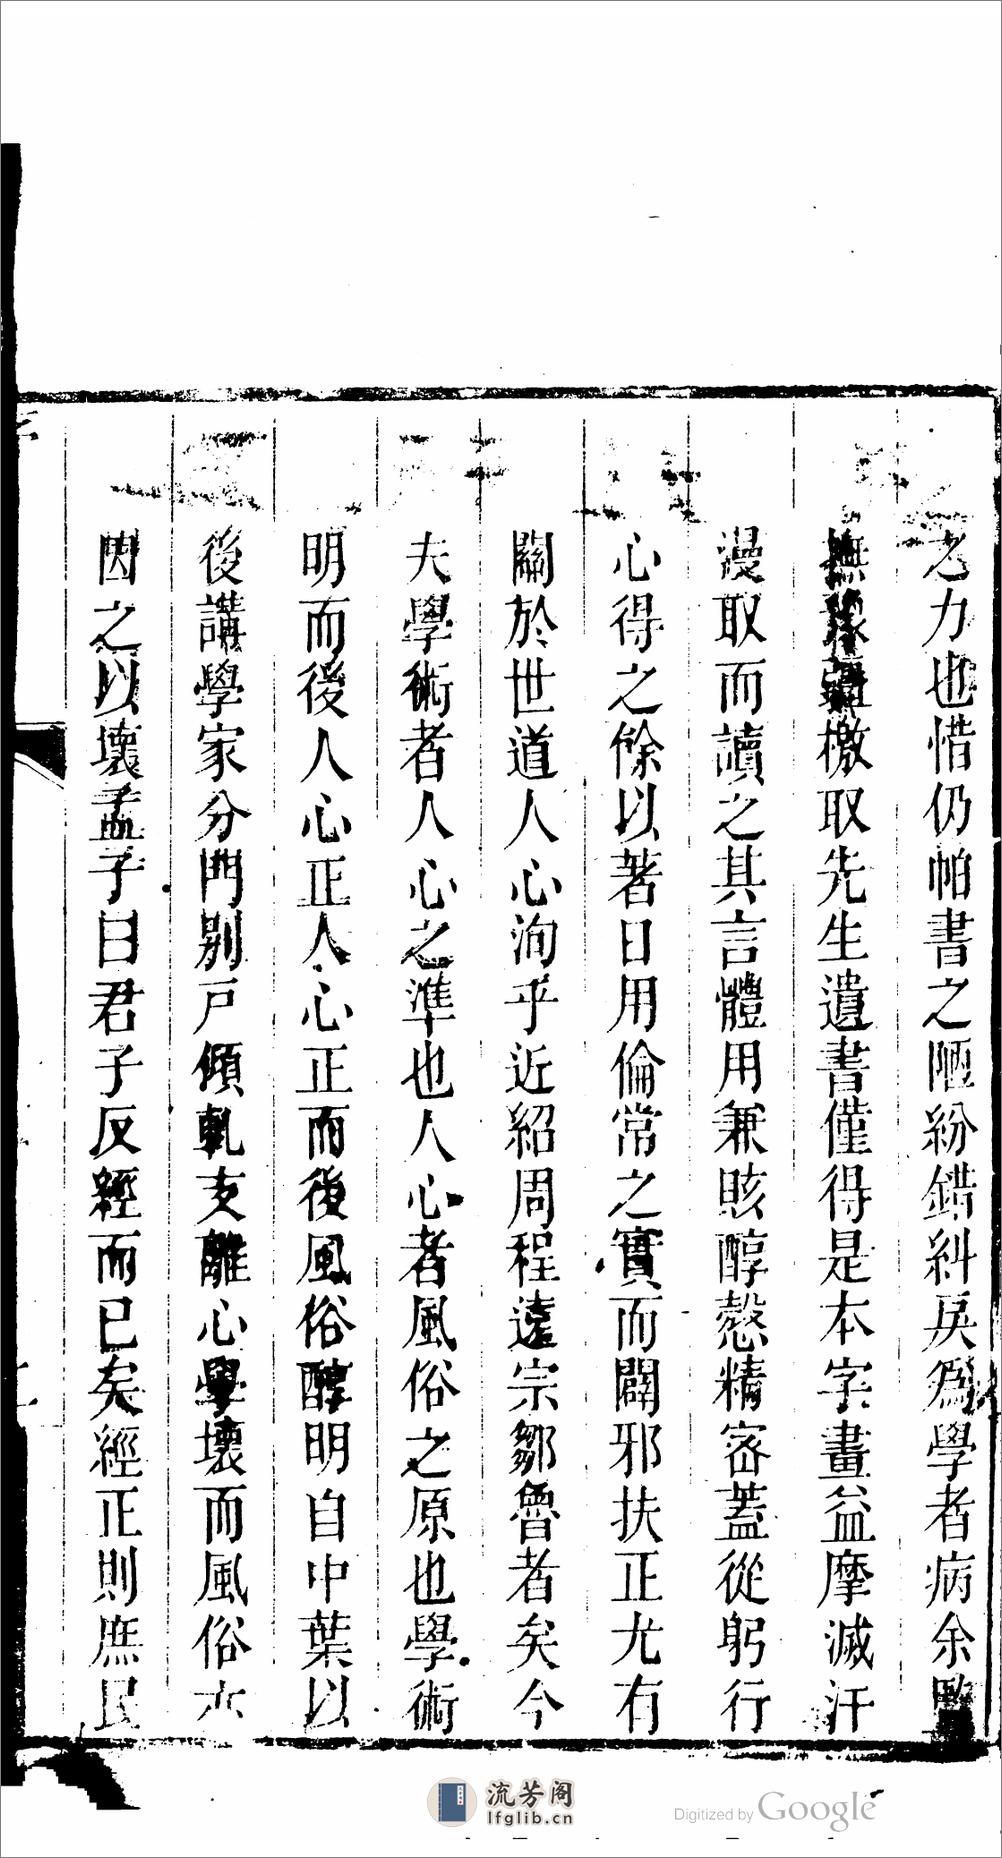 之力也惜仍帕書之陋紛錯糾戾爲學者病余
撫豫檄取先生遺書僅得是本字畫益摩滅汗
漫取而讀之其言體用兼賅醇慤精密蓋從躬行
心得之餘以著日用倫常之實而闢邪扶正尤有
關於世道人心洵乎近紹周程遠宗鄒魯者矣今
夫學術者人心之準也人心者風俗之原也學術
明而後人心正人心正而後風俗醇明自中葉以
後講學家分門别戸傾軋支離心學壞而風俗亦
因之以壞孟子曰君子反經而已矣經正則庶民
流芳阁
lfglib.cn
Digitized by Google